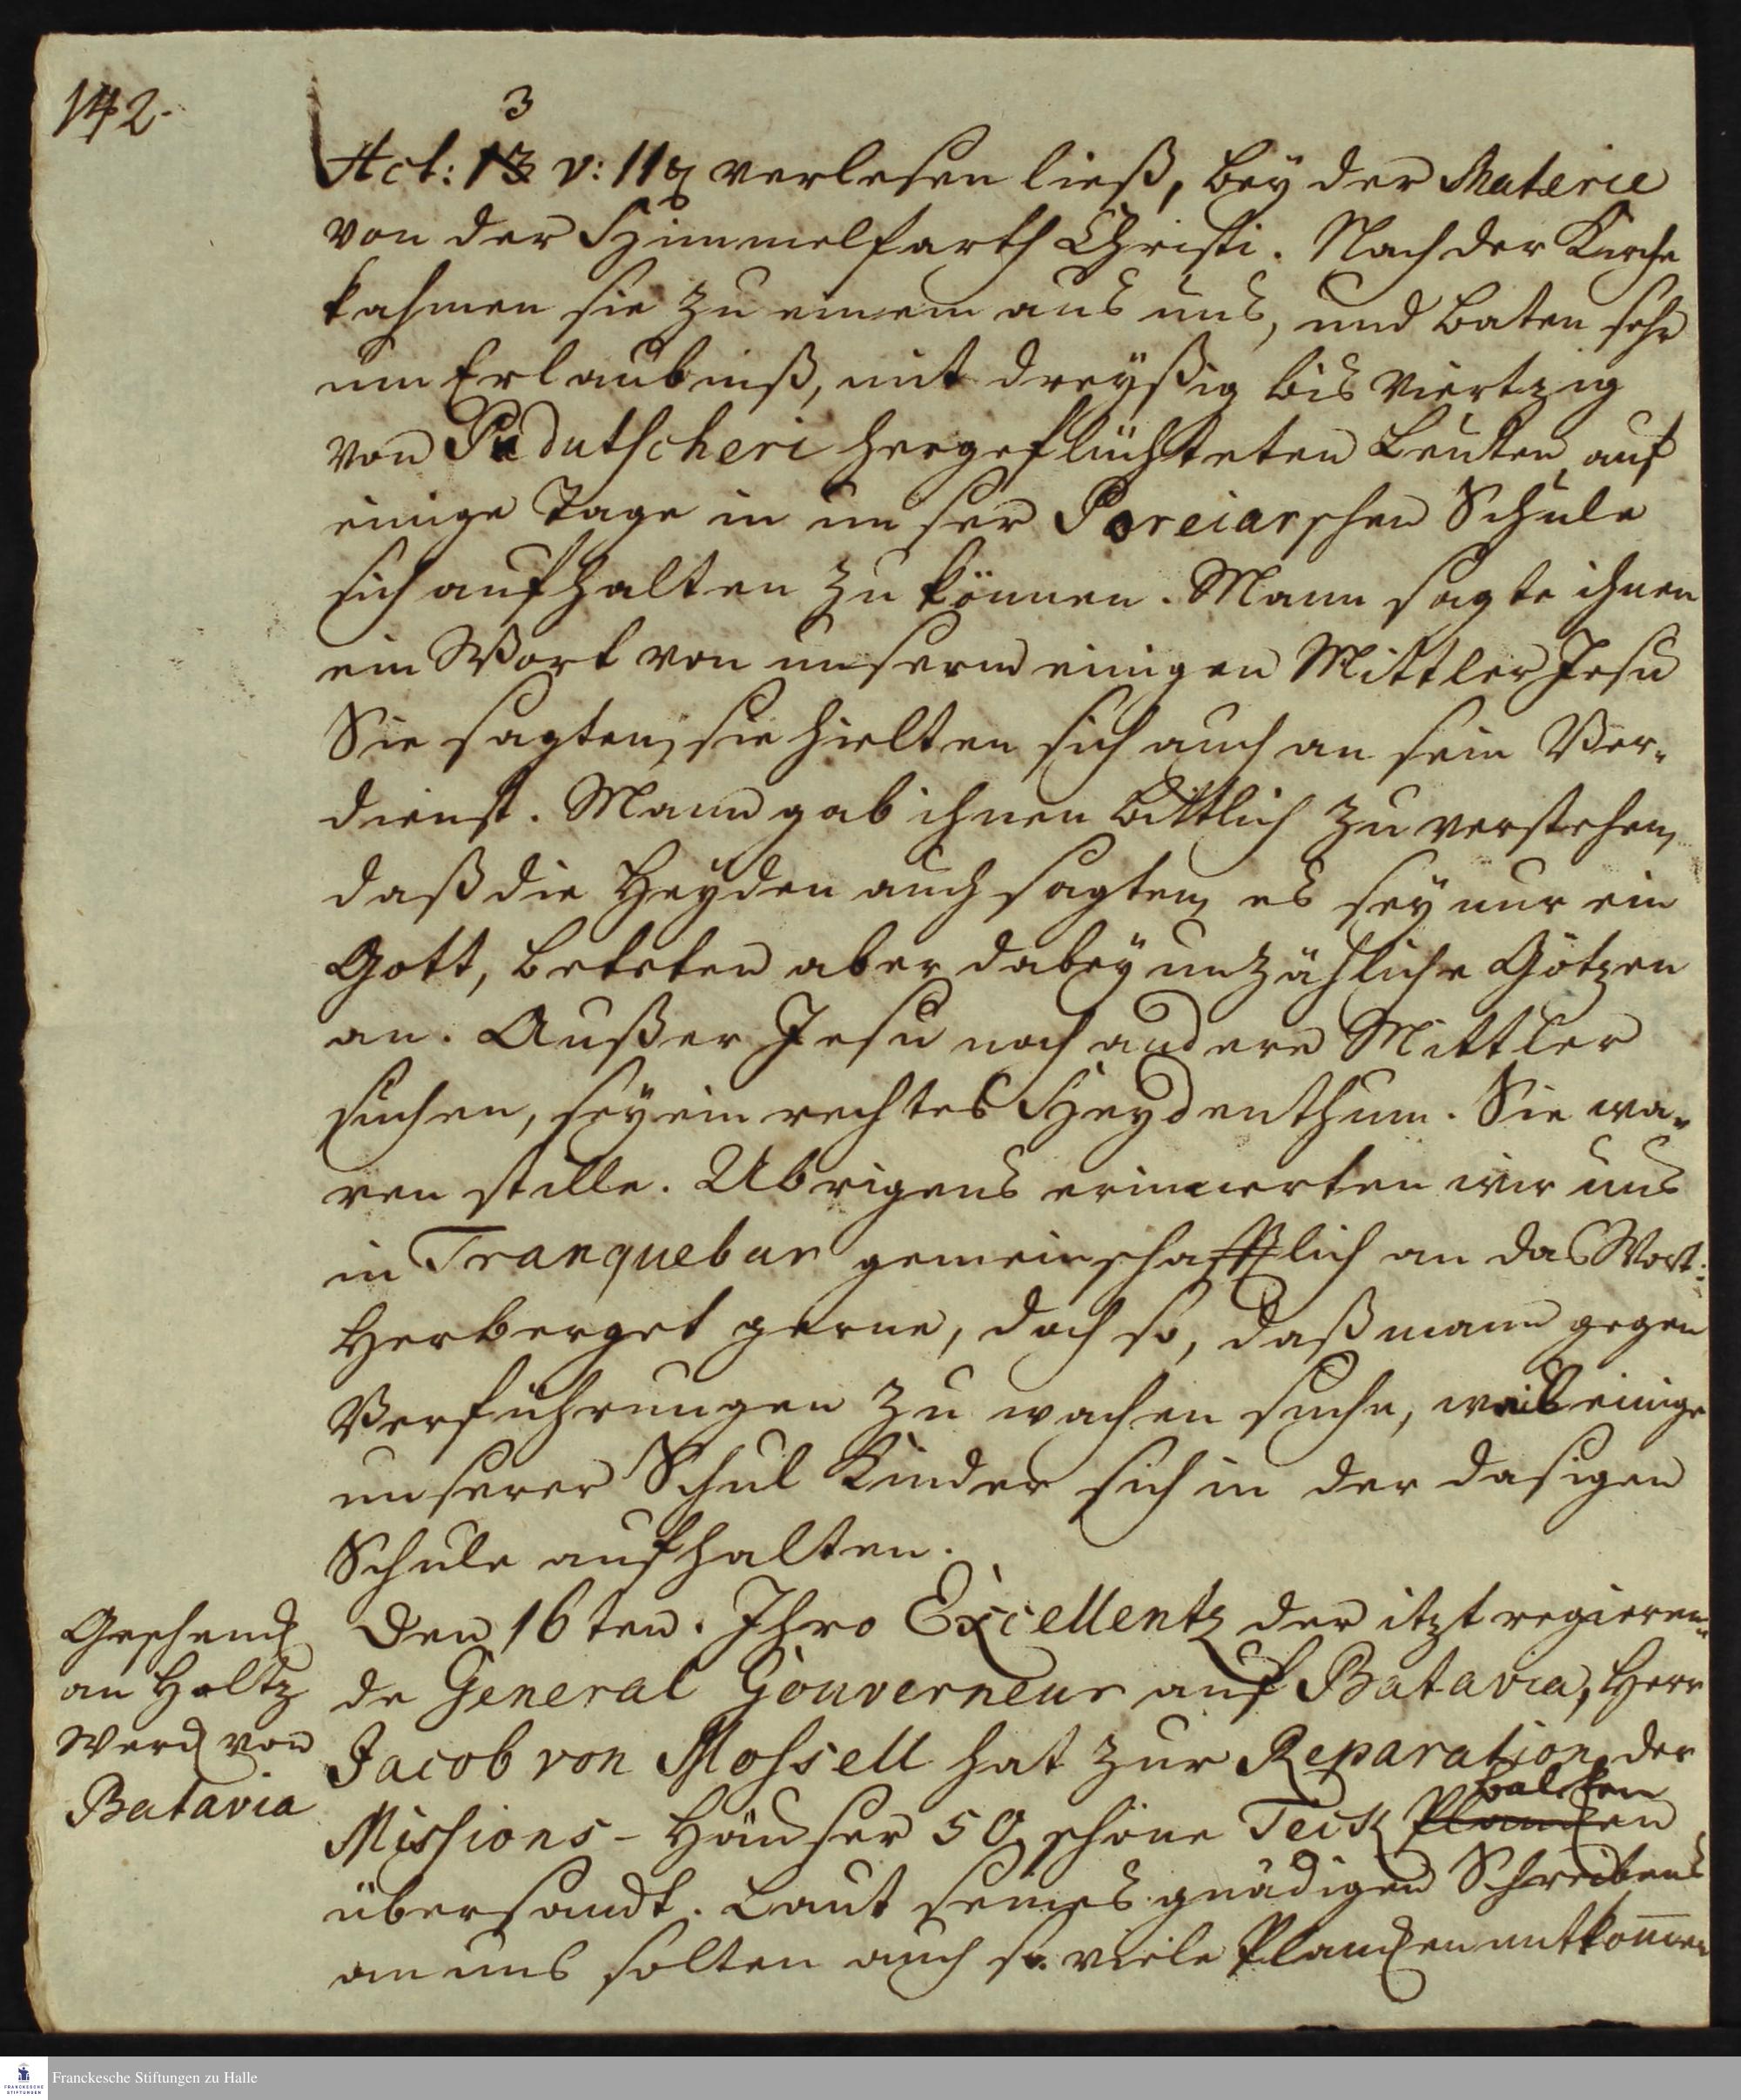 142.
3
Act: 13 v: 11 q verlesen ließ, bey der Materie
von der Himmelfarth Christi. Nach der Kirche
kahmen sie zu einem aus uns, und baten sehr
um Erlaubniß, mit dreyßig bis viertzig
von Pudutscheri hergeflüchteten Leuten, auf
einige Tage in unser Poreiarschen Schule
sich aufhalten zu können. Mann sagte ihnen
ein Wort von unserm einigen Mittler Jesu
Sie sagten, sie hielten sich auch an sein Ver-
dienst. Mann gab ihnen bittlich zu verstehen,
daß die Heyden auch sagten, es sey nur ein
Gott, beteten aber dabey unzähliche Götzen
an. Außer Jesu noch andere Mittler
suchen, sey ein rechtes Heydenthum. Sie wa-
ren stille. Ubrigens erinnerten wir uns
in Tranquebar gemeinschafftlich an das Wort:
Herberget gerne, doch so, daß mann gegen
Verführungen zu wachen suche, weil einige
unserer Schul Kinder sich in der dasigen
Schule aufhalten.
Geschenck
an Holtz
Werck von
Batavia
Den 16ten. Ihro Excellentz der itzt regieren-
de General Gouverneur auf Batavia, Herr
Jacob von Mossell hat zur Reparation der
balcken
Missions-Häuser 50 schöne Teik Plancken
übersandt. Laut seines gnädigen Schreibens
an uns solten auch so viele Plancken mitkom̅en